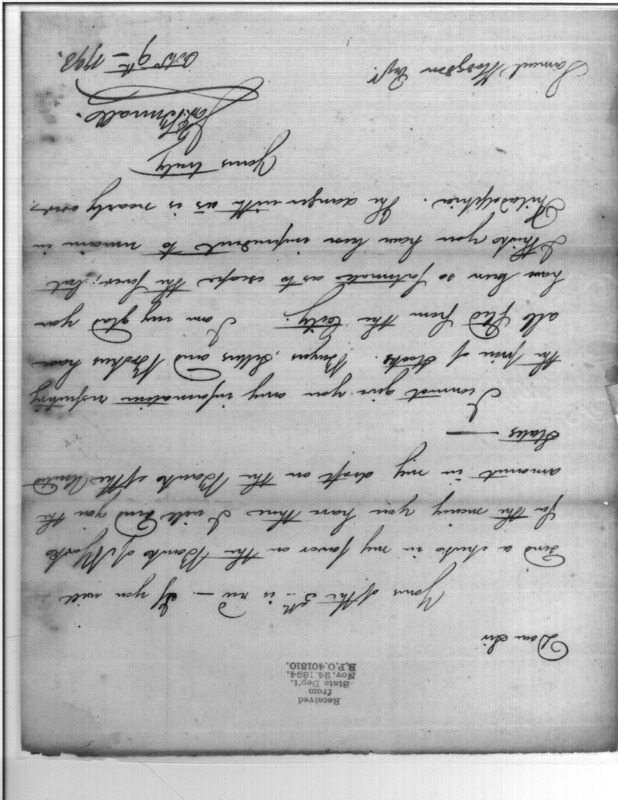 Received
from
State Dep't.
Nov. 24, 1894.
R.P.O. 401810.
Dear Sir
Yours of the 5th is rec — If you will
send a check in my favor on the Bank of N York
for the money you have there I will send you the
amount in my draft on the Bank of the United
States —
I cannot give you any information respecting
the price of Stocks. Buyers, Sellers and Brokers have
all fled from the City. I am very glad you
have been so fortunate as to escape the fever; but
I think you have been imprudent to remain in
Philadelphia. The danger with us is nearly over.
Yours truly
Octo 9th 1793.
Samuel Hodgdon Esqr.